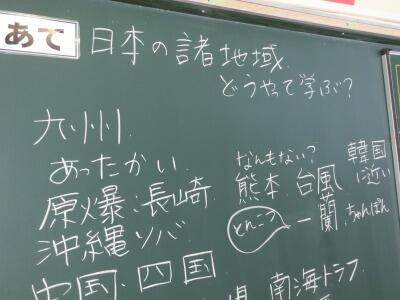 あて
日本の諸地域
どうやって学ぶ?
九州
あったかい
原爆:長崎
沖縄ソバ
なんもない?
熊本 台風
韓国に近い
とんこつ 一蘭 ちゃんぽん
中国、四国
南海トラフ